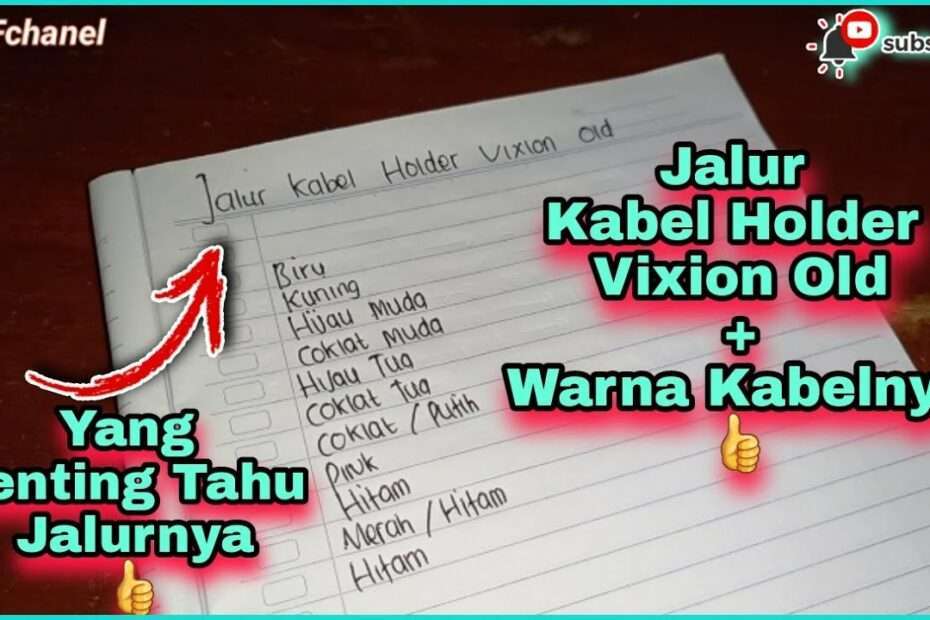 Fchanel
subs
Jalur Kabel Holder Vixion Old
Biru
Kuning
Hijau Muda
Coklat Muda
Hijau Tua
Coklat Tua
Coklat / Putih
Pink
Hitam
Merah / Hitam
Hitam
Jalur
Kabel Holder
Vixion Old
+
Warna Kabelny
Yang
enting Tahu
Jalurnya